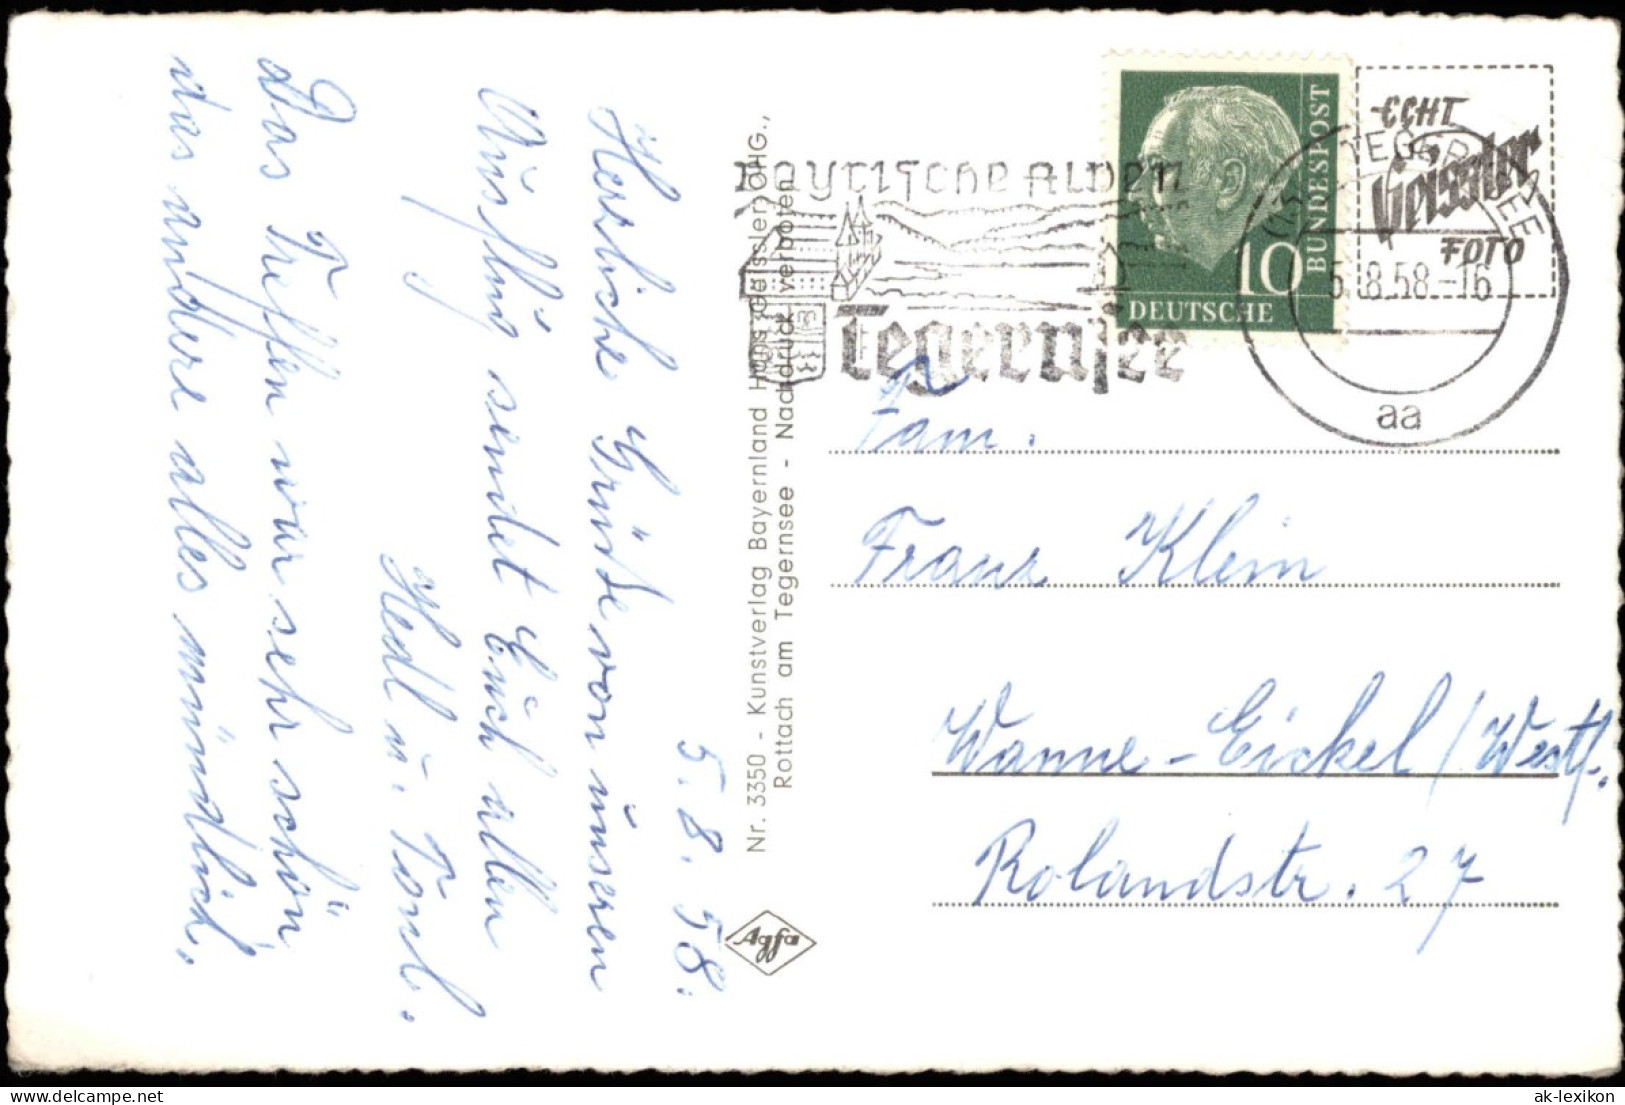 5. 8. 58.
Herzliche Grüße von unseren
Ausflug sendet Euch allen
Hedl u. Tonl.
Das Treffen war sehr schön
das andere alles mündlich.
Nr. 3350 - Kunstverlag Bayernland Hans Geissler OHG.,
Rottach am Tegernsee - Nachdruck verboten
Agfa
Bayrische Alpen
Tegernsee
10
DEUTSCHE
BUNDESPOST
ECHT
Geissler
FOTO
TEGERNSEE
5.8.58.-16
aa
Fam.
Franz Klein
Wanne-Eickel/Westf.
Rolandstr. 27
ak-lexikon
delcampe.net